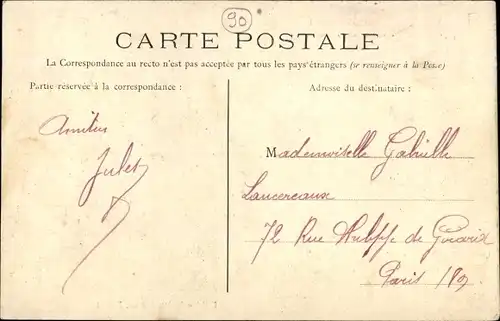 90
CARTE POSTALE
La Correspondance au recto n'est pas acceptée par tous les pays étrangers (se renseigner à la Poste)
Partie réservée à la correspondance :
Adresse du destinataire :
Amitiés
Jules
Mademoiselle Gabrielle
Lancereaux
72 Rue Philippe de Girard
Paris 18